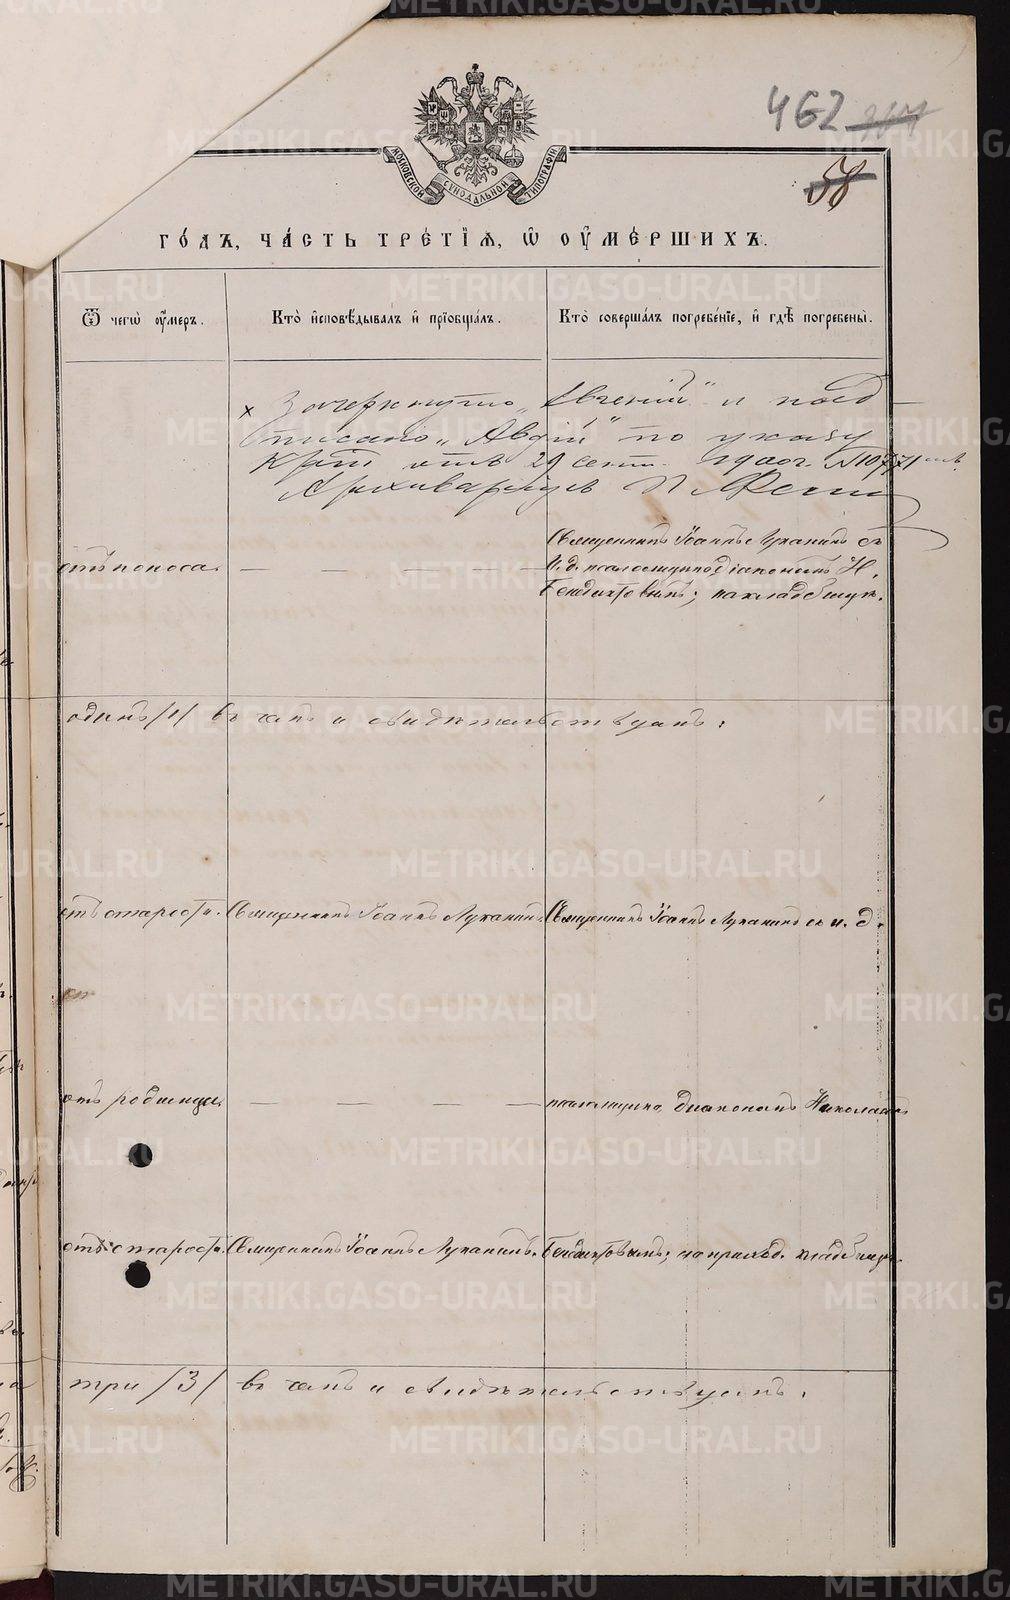 462
58
МОСКОВСКОЙ СѴНОДАЛЬНОЙ ТИПОГРАФІИ
ГОДЪ, ЧАСТЬ ТРЕТІЯ, Ѡ ОУМЕРШИХЪ.
Ѿ чегѡ оумеръ.
Кто исповѣдывалъ и пріобщалъ.
Кто совершалъ погребеніе, и гдѣ погребены.
× Зачеркнуто „Евгений" и над-
писано „Авдий" по указу
от 29 сент. №10771
Архивариус
Священникъ Іоаннъ Луканинъ съ
отъ поноса. — — — — и. д. псаломщика діакономъ Н.
Бендиктовымъ; на кладбищѣ.
одинъ /1/ въ чемъ и свидѣтельствуемъ:
отъ старости. Священникъ Іоаннъ Луканинъ. Священникъ Іоаннъ Луканинъ съ и. д.
от
отъ родимца. — — — — псаломщика, діакономъ Николаемъ
отъ старости. Священникъ Іоаннъ Луканинъ. Бендиктовымъ; на приход. кладбищѣ.
три /3/ въ чемъ и свидѣтельствуемъ:
METRIKI.GASO-URAL.RU